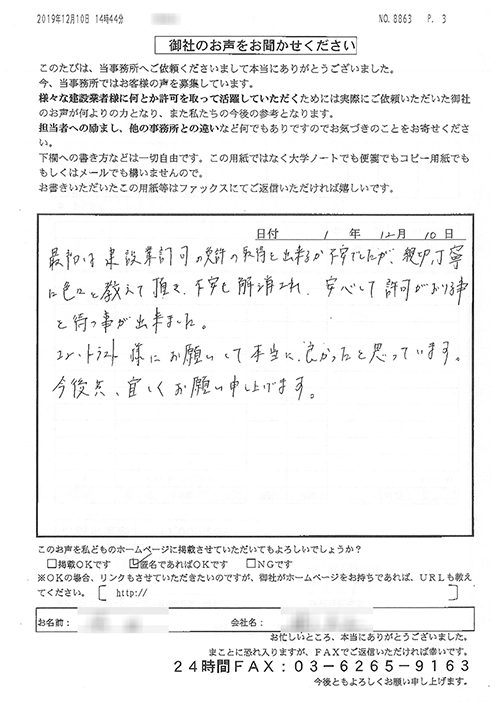 2019年12月10日 14時44分
NO. 8863 P. 3
御社のお声をお聞かせください
このたびは、当事務所へご依頼くださいまして本当にありがとうございました。
今、当事務所ではお客様の声を募集しています。
様々な建設業者様に何とか許可を取って活躍していただくためには実際にご依頼いただいた御社
のお声が何よりの力となり、また私たちの今後の参考となります。
担当者への励まし、他の事務所との違いなど何でもありですのでお気づきのことをお寄せくださ
い。
下欄への書き方などは一切自由です。この用紙ではなく大学ノートでも便箋でもコピー用紙でも
もしくはメールでも構いませんので。
お書きいただいたこの用紙等はファックスにてご返信いただければ嬉しいです。
日付 1 年 12 月 10 日
最初は建設業許可の免許の取得を出来るか不安でしたが、親切丁寧
に色々と教えて頂き、不安も解消され、安心して許可がおりる事
を待つ事が出来ました。
コントラスト様にお願いして本当に良かったと思っています。
今後共、宜しくお願い申し上げます。
このお声を私どものホームページに掲載させていただいてもよろしいでしょうか?
□掲載OKです ☑匿名であればOKです □NGです
※OKの場合、リンクもさせていただきたいのですが、御社がホームページをお持ちであれば、URLも教え
てください。〔 http:// 〕
お名前: 会社名:
お忙しいところ、本当にありがとうございました。
まことに恐れ入りますが、FAXでご返信いただければ幸いです。
24時間FAX:03-6265-9163
今後ともよろしくお願い申し上げます。